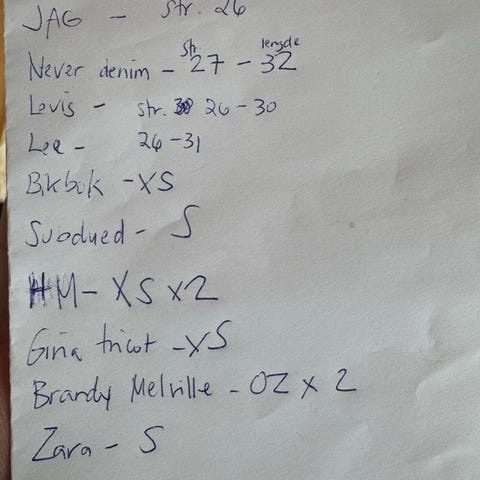 JAG - str. 26
str lengde
Never denim - 27 - 32
Levis - str. 26 - 30
Lee - 26 - 31
Bikbok - XS
Subdued - S
HM - XS x2
Gina tricot - XS
Brandy Melville - OZ x 2
Zara - S